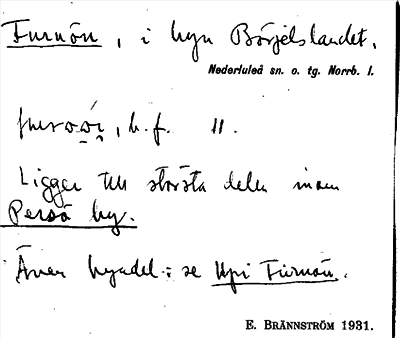 Furuön, i byn Börjelslandet,
Nederluleå sn. o. tg. Norrb. l.
b. f. 11.
Ligger till största delen inom
Persö by.
Även byadel: se Upi Furuön.
E. BRÄNNSTRÖM 1931.